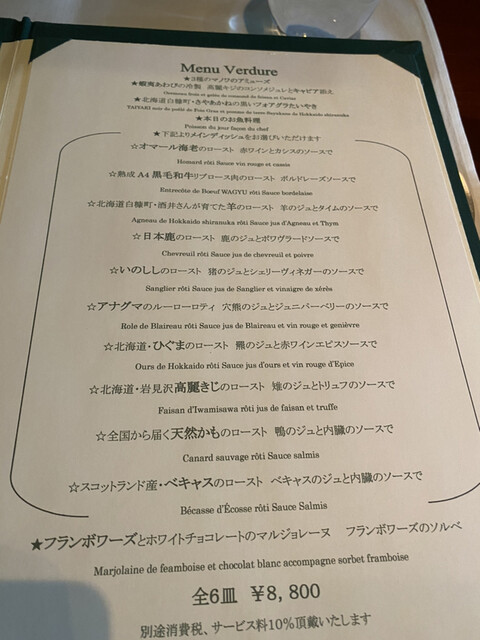 Menu Verdure
★3種のマノワのアミューズ
★蝦夷あわびの冷製　高麗キジのコンソメジュレとキャビア添え
★北海道白糠町・さやあかねの黒いフォアグラたいやき
★本日のお魚料理
Poisson du jour façon du chef
★下記よりメインディッシュをお選びいただけます
☆オマール海老のロースト　赤ワインとカシスのソースで
Homard rôti Sauce vin rouge et cassis
☆熟成 A4 黒毛和牛リブロース肉のロースト　ボルドレーズソースで
Entrecôte de Bœuf WAGYU rôti Sauce bordelaise
☆北海道白糠町・酒井さんが育てた羊のロースト　羊のジュとタイムのソースで
Agneau de Hokkaido shiranuka rôti Sauce jus d'Agneau et Thym
☆日本鹿のロースト　鹿のジュとポワヴラードソースで
Chevreuil rôti Sauce jus de chevreuil et poivre
☆いのししのロースト　猪のジュとシェリーヴィネガーのソースで
Sanglier rôti Sauce jus de Sanglier et vinaigre de xérès
☆アナグマのルーローロティ　穴熊のジュとジュニパーベリーのソースで
Role de Blaireau rôti Sauce jus de Blaireau et vin rouge et genièvre
☆北海道・ひぐまのロースト　熊のジュと赤ワインエピスソースで
Ours de Hokkaido rôti Sauce jus d'ours et vin rouge d'Epice
☆北海道・岩見沢高麗きじのロースト　雉のジュとトリュフのソースで
Faisan d'Iwamisawa rôti jus de faisan et truffe
☆全国から届く天然かものロースト　鴨のジュと内臓のソースで
Canard sauvage rôti Sauce salmis
☆スコットランド産・ベキャスのロースト　ベキャスのジュと内臓のソースで
Bécasse d'Écosse rôti Sauce Salmis
★フランボワーズとホワイトチョコレートのマルジョレーヌ　フランボワーズのソルベ
Marjolaine de feamboise et chocolat blanc accompagne sorbet framboise
全6皿　￥8,800
別途消費税、サービス料10%頂戴いたします